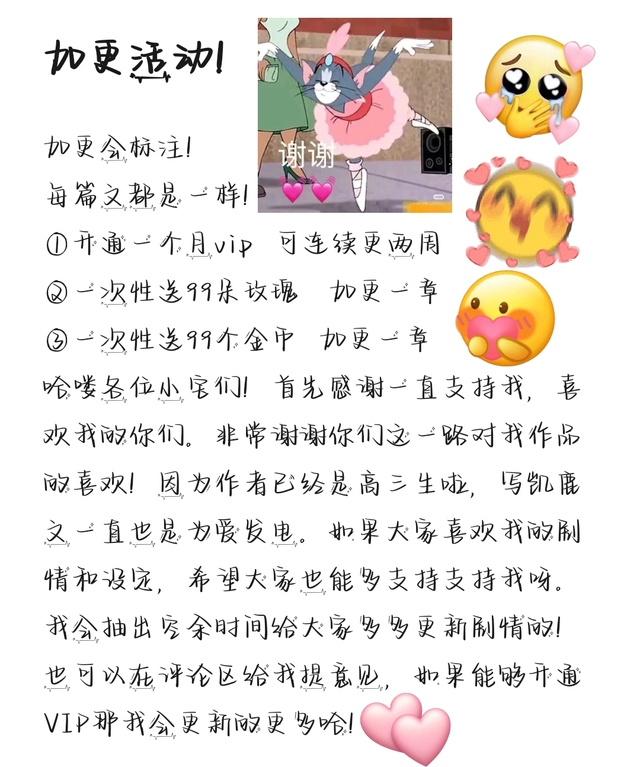 加更活动!
谢谢
加更会标注!
每篇文都是一样!
①开通一个月vip 可连续更两周
②一次性送99朵玫瑰 加更一章
③一次性送99个金币 加更一章
哈喽各位小宝们! 首先感谢一直支持我, 喜
欢我的你们。非常谢谢你们这一路对我作品
的喜欢! 因为作者已经是高三生啦, 写凯鹿
文一直也是为爱发电。如果大家喜欢我的剧
情和设定, 希望大家也能多支持支持我呀。
我会抽出空余时间给大家多多更新剧情的!
也可以在评论区给我提意见, 如果能够开通
VIP那我会更新的更多哈!